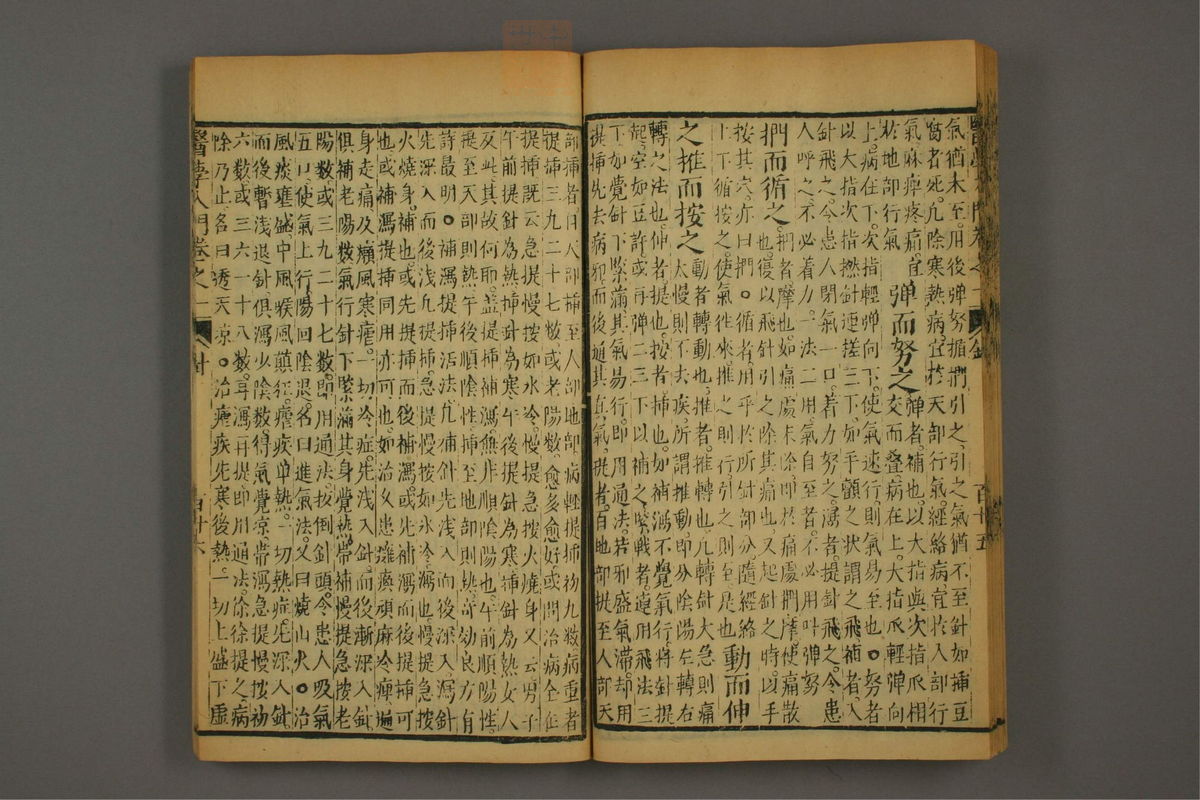 氣猶未至。用後彈努循捫引之。引之氣猶不至。針如插豆
腐者死。凡除寒熱病。宜於天部行氣。經絡病宜於人部行
氣。麻痺疼痛。宜於地部行氣。
彈而努之。彈者補也。以大指與次指爪相交而疊。病在上。大指爪輕彈向
上。病住下。次指輕彈向下。使氣速行則氣易至也。○努者
以大指次指撚針連搓三下。如手顫之狀。謂之飛。補者入
針飛之。令患人閉氣一口。著力努之。瀉者提針飛之。令患
人呼之。不必着力。一法二用。氣自至者。不必用此彈努
捫而循之。捫者摩也。如痛處未除。即於痛處捫摩。使痛散
也。復以飛針引之。除其痛也。又起針之時。以手
按其穴。亦曰捫。○循者。用手於所針部分。隨經絡
上下循按之。使氣往來。推之則行。引之則至。是也。動而伸
之推而按之。動者轉動也。推者推轉也。凡轉針太急則痛
太慢則不去疾。所謂推動。即分陰陽左轉右
轉之法也。伸者提也。按者插也。如補瀉不覺氣行。將針提
起。空如豆許。或再彈二三下以補之。緊戰者。連用飛法三
下。如覺針下緊滿。其氣易行。即用通法。若邪盛氣滯。却用
提插先去病邪。而後通其真氣。提者。自地部提至人部天
部。插者自天部插至人部地部。病輕提插初九數。病重者
提插三九二十七數。或老陽數。愈多愈好。或問治病全在
提插。既云急提慢按如水冷。慢提急按火燒身。又云男子
午前提針為熱。插針為寒。午後提針為寒。插針為熱。女人
反此。其故何耶。蓋提插補瀉。無非順陰陽也。午前順陽性。
提至天部則熱。午後順陰性。插至地部則熱。奇効良方有
詩最明。○補瀉提插活法。凡補針先淺入而後深入。瀉針
先深入而後淺。凡提插。急提慢按如氷冷。瀉也。慢提急按
火燒身。補也。或先提插而後補瀉。或先補瀉而後提插。可
也。或補瀉提插同用亦可也。如治久患癱瘓。頑麻冷痺。遍
身走痛及癩風寒瘧。一切冷症。先淺入針。而後漸深入針。
俱補老陽數。氣行針下緊滿。其身覺熱。帶補慢提急按老
陽數。或三九二十七數。即用通法。扳倒針頭。令患人吸氣
五口。使氣上行。陽回陰退。名曰進氣法。又曰燒山火。○治
風痰壅盛。中風喉風癲狂。瘧疾單熱。一切熱症。先深入針。
而後暫淺退針。俱瀉少陰數。得氣覺涼。帶瀉急提慢按初
六數。或三六一十八數。再瀉再提。即用通法。徐徐提之。病
除乃止。名曰透天涼。○治瘧疾先寒後熱。一切上盛下虛
醫學入門卷之一
百十五
醫學入門卷之一
百十六